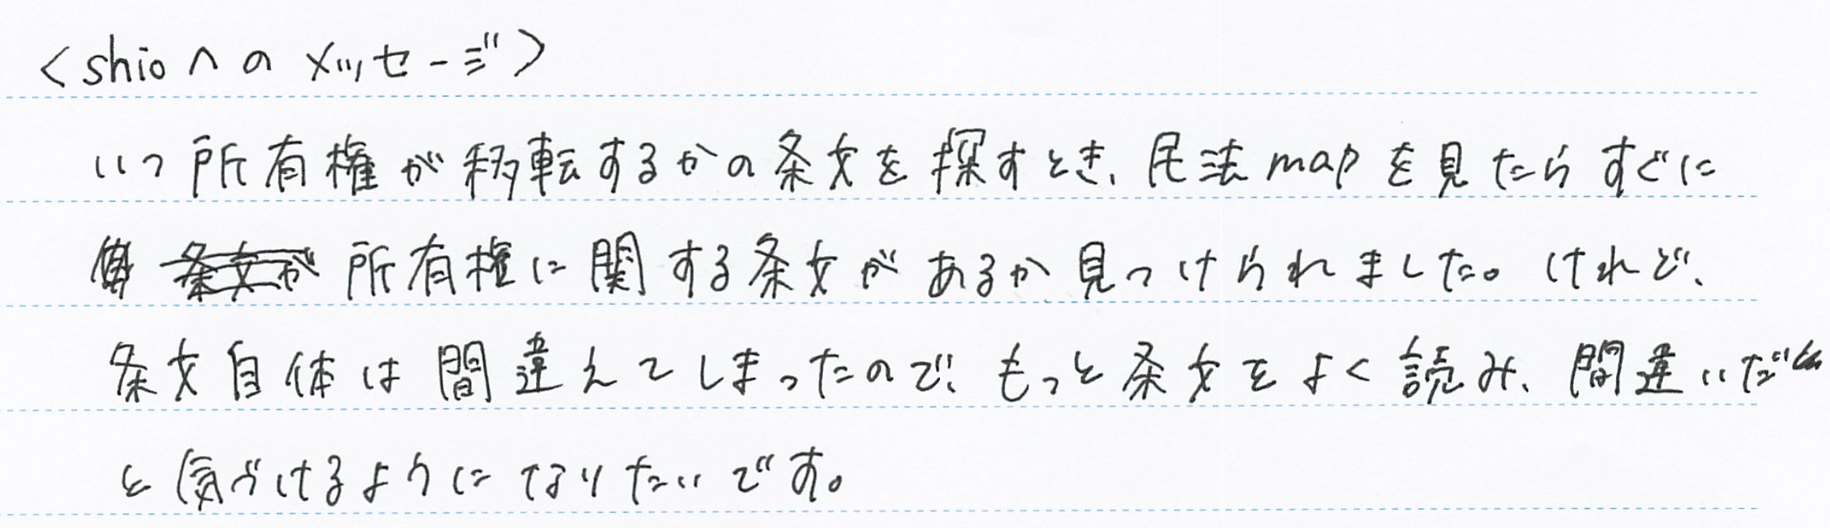 <shioへのメッセージ>
いつ所有権が移転するかの条文を探すとき、民法mapを見たらすぐに
所有権に関する条文があるか見つけられました。けれど、
条文自体は間違えてしまったので、もっと条文をよく読み、間違いだ
と気づけるようになりたいです。